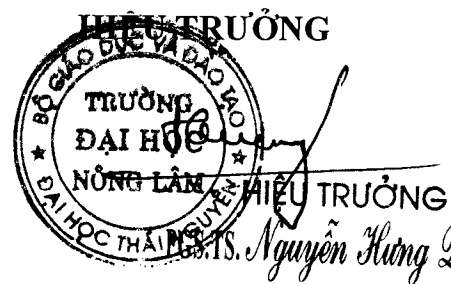 HIỆU TRƯỞNG
BỘ GIÁO DỤC VÀ ĐÀO TẠO
TRƯỜNG
ĐẠI HỌC
NÔNG LÂM
ĐẠI HỌC THÁI NGUYÊN
HIỆU TRƯỞNG
PGS.TS. Nguyễn Hưng